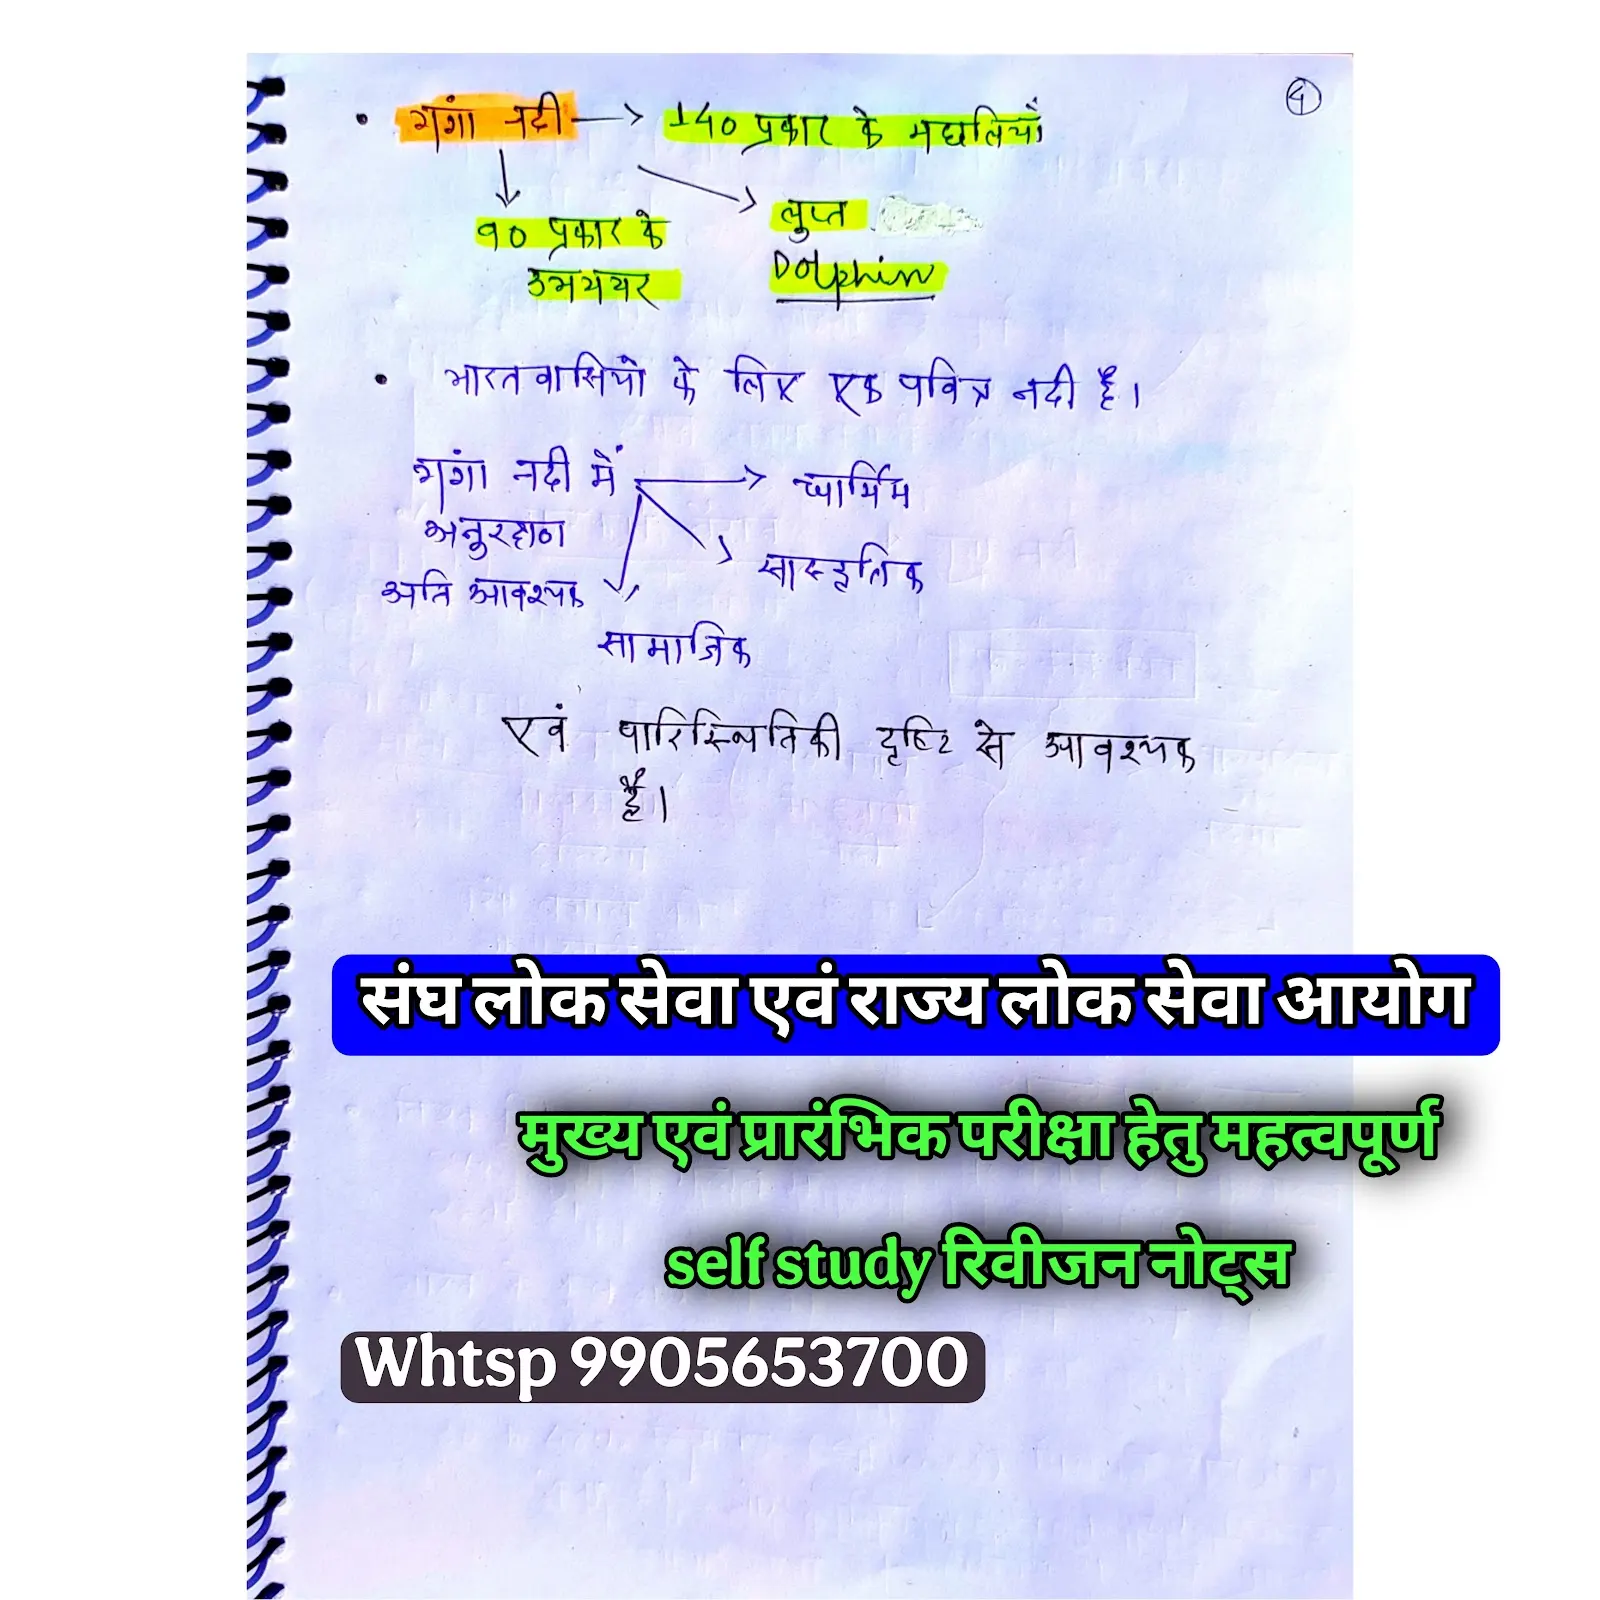 4
• गंगा नदी → 140 प्रकार के मछलियाँ
90 प्रकार के
उभयचर
लुप्त
Dolphin
• भारतवासियों के लिए एक पवित्र नदी है।
गंगा नदी में → धार्मिक
अनुरक्षण
अति आवश्यक
सांस्कृतिक
सामाजिक
एवं पारिस्थितिकी दृष्टि से आवश्यक
है।
संघ लोक सेवा एवं राज्य लोक सेवा आयोग
मुख्य एवं प्रारंभिक परीक्षा हेतु महत्वपूर्ण
self study रिवीजन नोट्स
Whtsp 9905653700